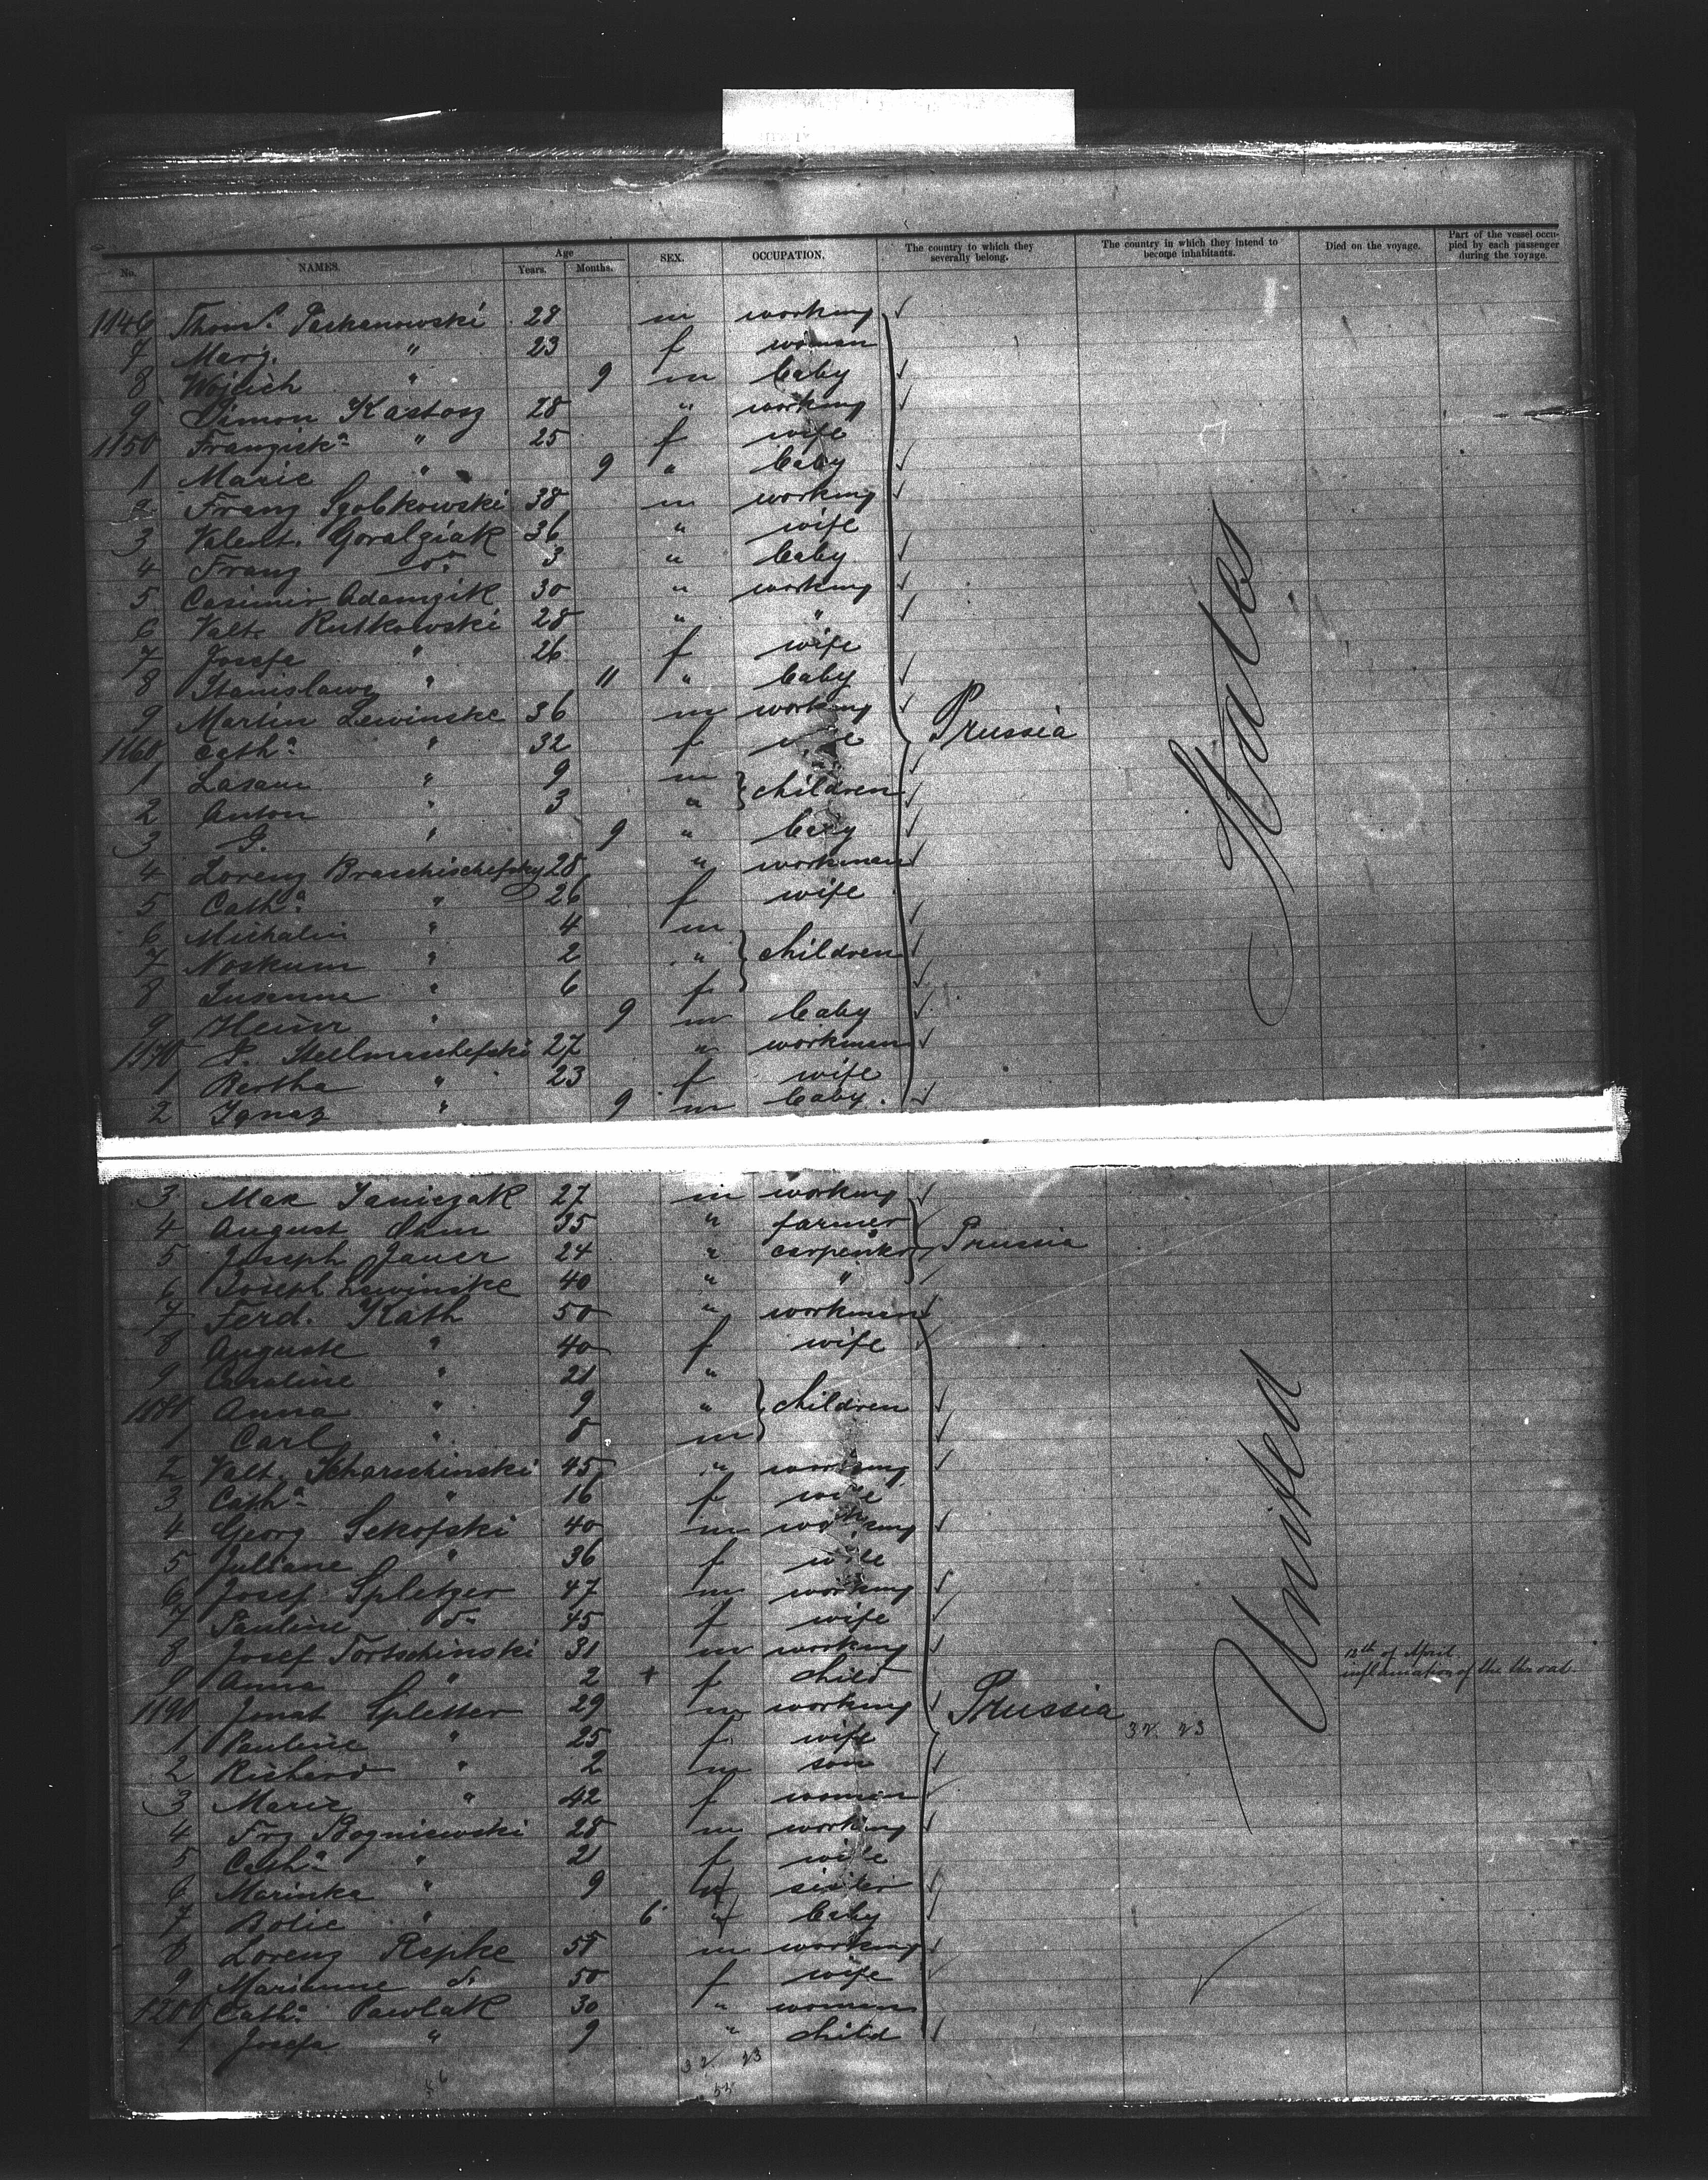 No. NAMES. Age Years. Months. SEX. OCCUPATION. The country to which they severally belong. The country in which they intend to become inhabitants. Died on the voyage. Part of the vessel occupied by each passenger during the voyage.
1146 Thoms. 28 m working
7 Marg. " 23 f woman
8 Wojcich " 9 m baby
9 Simon Kastosz 28 " working
1150 Franziska " 25 f wife
1 Marie " 9 " baby
2 Franz Szobkowski 38 m working
3 Valent. Goralziak 36 " wife
4 Franz do 3 " baby
5 Casimir Adamzik 30 " working
6 Valt. Rutkowski 28 " "
7 Josefa " 26 f wife
8 Stanislawa " 11 " baby
9 Martin Lewinske 36 m working
Prussia
1160 Cath.a " 32 f wife
1 " 9 m children
2 Anton " 3 "
3 G. " 9 " baby
4 Lorenz Braschischefsky 28 " workman
5 Cath.a " 26 f wife
6 Michalin " 4 m
7 " 2 " children
8 Susanna " 6 f
9 Heinr " 9 m baby
1170 Stellmaschefski 27 " workman
1 Bertha " 23 f wife
2 Ignaz " 9 m baby.
3 Max Janiczak 27 m working
4 August 35 " farmer
5 Joseph Jauer 24 " carpenter Prussia
6 Joseph Lewinske 40 " "
7 Ferd. Kath 50 " workman
8 Auguste " 40 f wife
9 Caroline " 21 "
1180 Anna " 9 " children
1 Carl " 8 m
2 Valt. Scharschinski 45 " working
3 Cath.a " 16 f wife
4 Georg Sekofski 40 m working
5 Juliane " 36 f wife
6 Josef Spletzer 47 m working
7 Pauline do 45 f wife
8 Josef Tortschinski 31 m working
12th of April
9 Anna " 2 + f child inflamation of the throat
1190 Jonat Spletter 29 m working
Prussia
32 23
1 Pauline " 25 f wife
2 Richard " 2 m son
3 Marie " 42 f woman
4 Frz Bogniewski 28 m working
5 Cath.a " 21 f wife
6 Marinka " 9 f sister
7 " 6 f baby
8 Lorenz Repke 55 m working
9 Marianne do 50 f wife
1200 Cath.a Pawlak 30 " woman
1 Josefa " 9 " child
32 23
United States